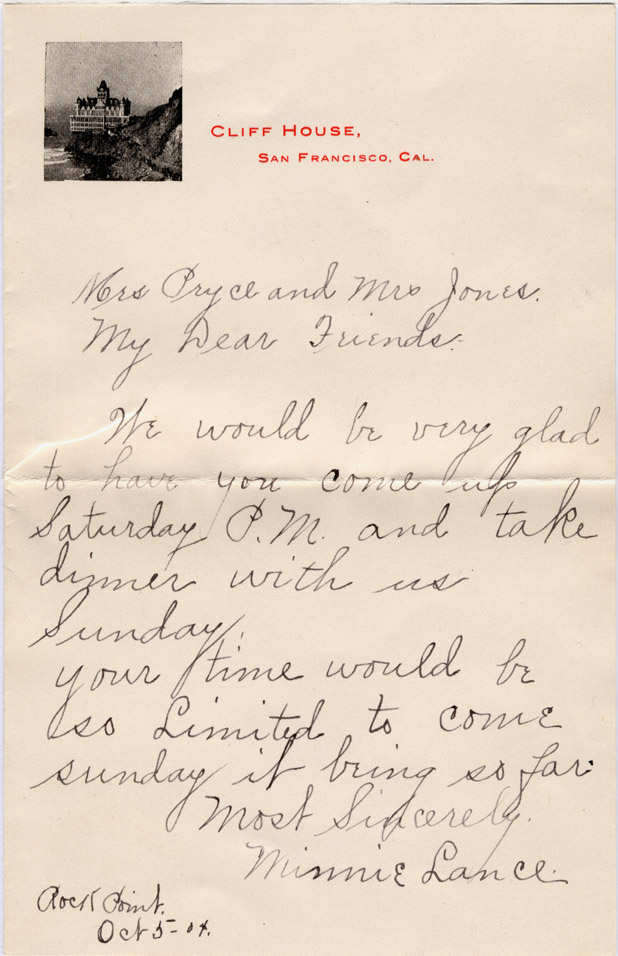 CLIFF HOUSE,
SAN FRANCISCO, CAL.
Mrs Pryce and Mrs Jones.
My Dear Friends.
We would be very glad
to have you come up
Saturday P.M. and take
dinner with us
Sunday.
your time would be
so Limited to come
sunday it being so far.
Most Sincerely.
Minnie Lance.
Rock Point.
Oct 5- 04.